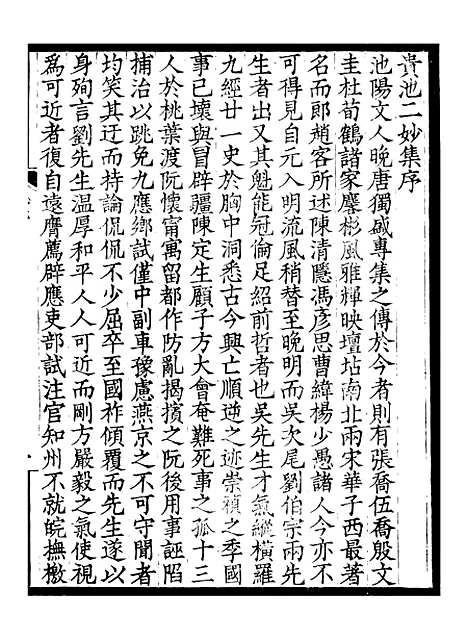 貴池二妙集序
池陽文人晚唐獨盛專集之傳於今者則有張喬伍喬殷文
圭杜荀鶴諸家麐彬風雅輝映壇坫南北兩宋華子西最著
名而郎趙客所述陳清隱馮彥思曹緯楊少愚諸人今亦不
可得見自元入明流風稍替至晚明而吳次尾劉伯宗兩先
生者出又其魁能冠倫足紹前哲者也吳先生才氣縱橫羅
九經廿一史於胸中洞悉古今興亡順逆之迹崇禎之季國
事已壞與冒辟疆陳定生顧子方大會奄難死事之孤十三
人於桃葉渡阮懷甯寓留都作防亂揭擯之阮後用事誣陷
捕治以跳免九應鄉試僅中副車豫慮燕京之不可守聞者
均笑其迂而持論侃侃不少屈卒至國祚傾覆而先生遂以
身殉言劉先生溫厚和平人人可近而剛方嚴毅之氣使視
爲可近者復自遠膺薦辟應吏部試注官知州不就皖撫檄